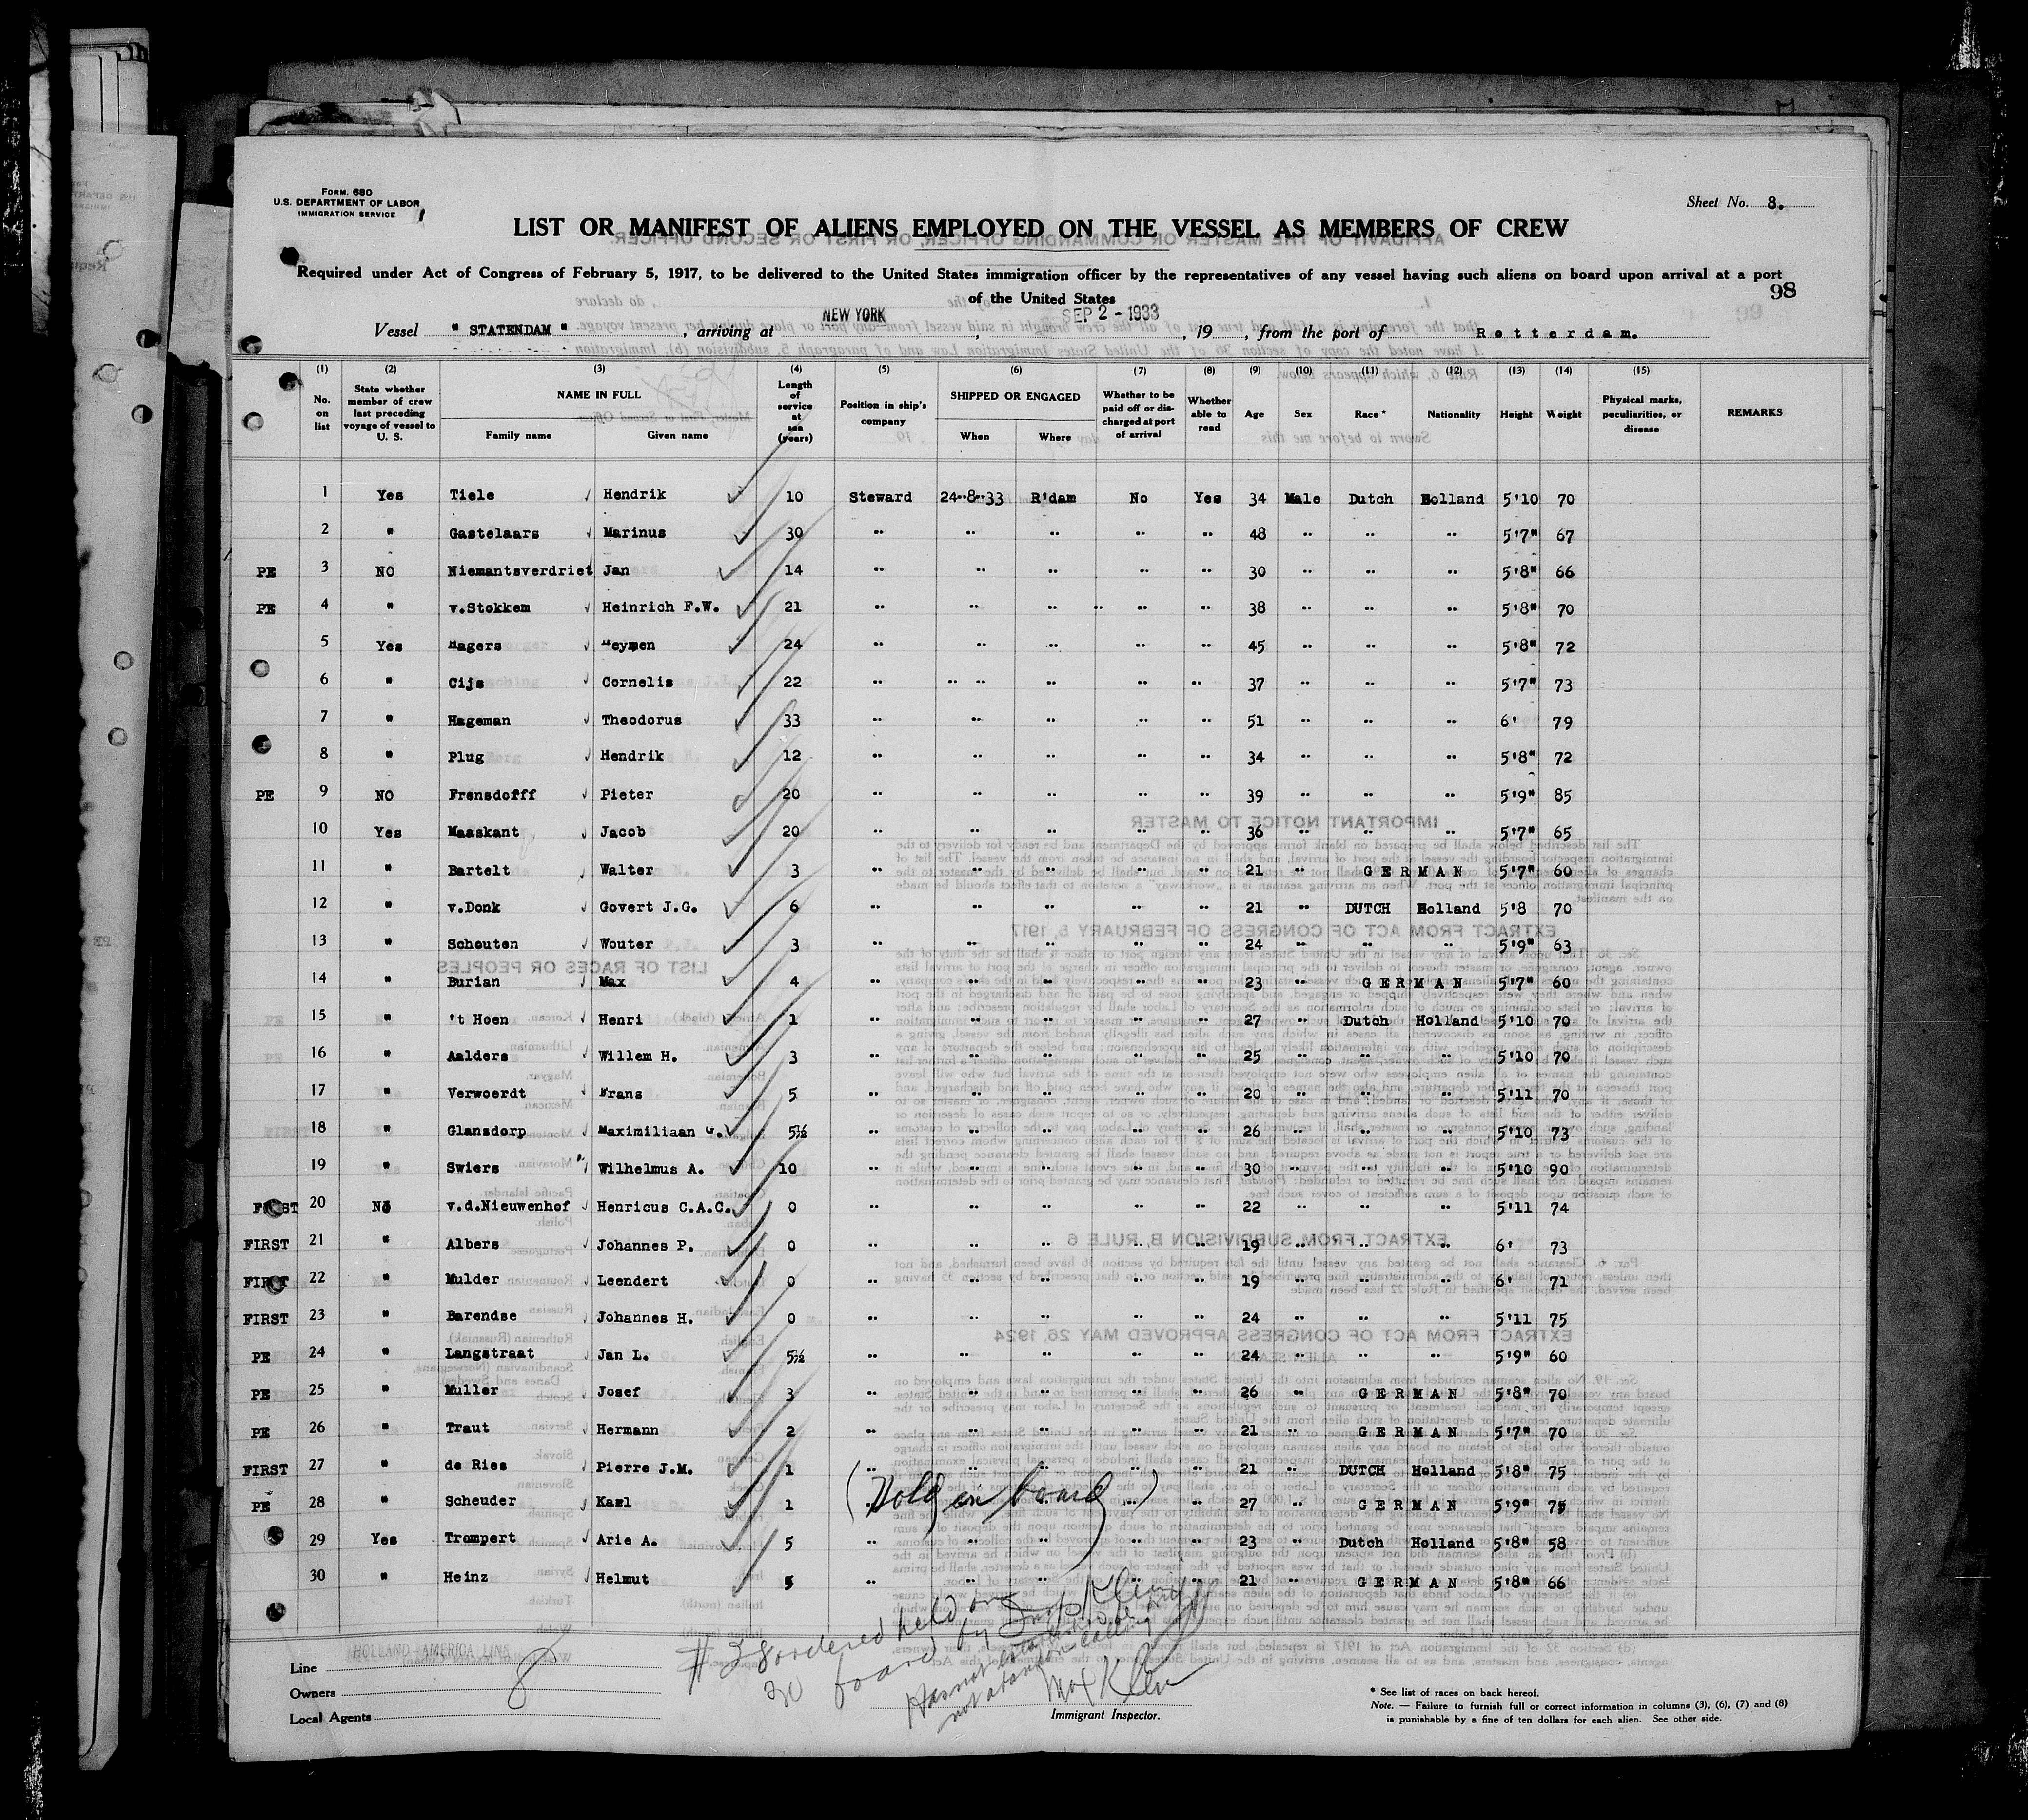 FORM. 680
U.S. DEPARTMENT OF LABOR
IMMIGRATION SERVICE
Sheet No. 8.
LIST OR MANIFEST OF ALIENS EMPLOYED ON THE VESSEL AS MEMBERS OF CREW
Required under Act of Congress of February 5, 1917, to be delivered to the United States immigration officer by the representatives of any vessel having such aliens on board upon arrival at a port
of the United States
98
Vessel " STATENDAM " , arriving at NEW YORK , SEP 2 - 1933 , 19 , from the port of Rotterdam.
(1) (2) (3) (4) (5) (6) (7) (8) (9) (10) (11) (12) (13) (14) (15)
No. on list
State whether member of crew last preceding voyage of vessel to U. S.
NAME IN FULL
Family name Given name
Length of service at sea (years)
Position in ship's company
SHIPPED OR ENGAGED
When Where
Whether to be paid off or discharged at port of arrival
Whether able to read
Age Sex Race* Nationality Height Weight
Physical marks, peculiarities, or disease
REMARKS
1 Yes Tiele Hendrik 10 Steward 24-8-33 R'dam No Yes 34 Male Dutch Holland 5'10 70
2 " Gastelaars Marinus 30 " " " " " 48 " " " 5'7" 67
PE 3 NO Niemantsverdriet Jan 14 " " " " " 30 " " " 5'8" 66
PE 4 " v.Stokkem Heinrich F.W. 21 " " " " " 38 " " " 5'8" 70
5 Yes Hagers Heymen 24 " " " " " 45 " " " 5'8" 72
6 " Cijs Cornelis 22 " " " " " 37 " " " 5'7" 73
7 " Hageman Theodorus 33 " " " " " 51 " " " 6' 79
8 " Plug Hendrik 12 " " " " " 34 " " " 5'8" 72
PE 9 NO Frensdofff Pieter 20 " " " " " 39 " " " 5'9" 85
10 Yes Maaskant Jacob 20 " " " " " 36 " " " 5'7" 65
11 " Bartelt Walter 3 " " " " " 21 " GERMAN 5'7" 60
12 " v.Donk Govert J.G. 6 " " " " " 21 " DUTCH Holland 5'8 70
13 " Schouten Wouter 3 " " " " " 24 " " " 5'9" 63
14 " Burian Max 4 " " " " " 23 " GERMAN 5'7" 60
15 " 't Hoen Henri 1 " " " " " 27 " Dutch Holland 5'10 70
16 " Aalders Willem H. 3 " " " " " 25 " " " 5'10 70
17 " Verwoerdt Frans 5 " " " " " 20 " " " 5'11 70
18 " Glansdorp Maximiliaan G. 5½ " " " " " 26 " " " 5'10 73
19 " Swiers Wilhelmus A. 10 " " " " " 30 " " " 5'10 90
FIRST 20 NO v.d.Nieuwenhof Henricus C.A.C. 0 " " " " " 22 " " " 5'11 74
FIRST 21 " Albers Johannes P. 0 " " " " " 19 " " " 6' 73
FIRST 22 " Mulder Leendert 0 " " " " " 19 " " " 6' 71
FIRST 23 " Barendse Johannes H. 0 " " " " " 24 " " " 5'11 75
PE 24 " Langstraat Jan L. 5½ " " " " " 24 " " " 5'9" 60
PE 25 " Muller Josef 3 " " " " " 26 " GERMAN 5'8" 70
PE 26 " Traut Hermann 2 " " " " " 21 " GERMAN 5'7" 70
FIRST 27 " de Ries Pierre J.M. 1 " " " " " 21 " DUTCH Holland 5'8" 75
PE 28 " Scheuder Karl 1 " " " " " 27 " GERMAN 5'9" 75
(Hold on board)
29 Yes Trompert Arie A. 5 " " " " " 23 " Dutch Holland 5'8" 58
30 " Heinz Helmut 5 " " " " " 21 " GERMAN 5'8" 66
# 28 ordered held on
board by Insp Klein
30
Max Klein
HOLLAND AMERICA LINE
Line
Owners
Local Agents
8
Immigrant Inspector.
* See list of races on back hereof.
Note. — Failure to furnish full or correct information in columns (3), (6), (7) and (8)
is punishable by a fine of ten dollars for each alien. See other side.